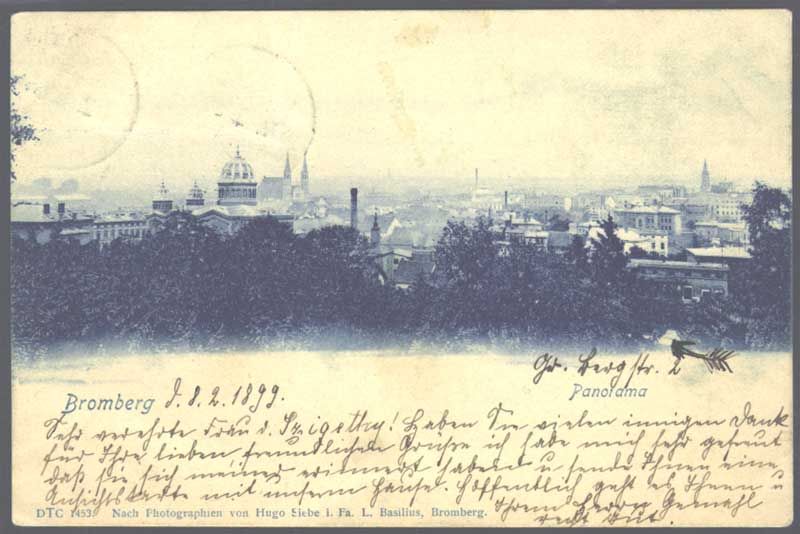 Gr. Bergstr. 2
Panorama
Bromberg d. 8. 2. 1899.
Sehr verehrte Frau v. Szigethy! Haben Sie vielen innigen Dank
für Ihre lieben, freundlichen Grüße ich habe mich sehr gefreut
daß sie sich meiner erinnert haben u sende Ihnen eine
Ansichtskarte mit unserm Hause. Hoffentlich geht es Ihnen u
Ihrem Herrn Gemahl
recht gut.
DTC 1453. Nach Photographien von Hugo Siebe i. Fa. L. Basilius, Bromberg.